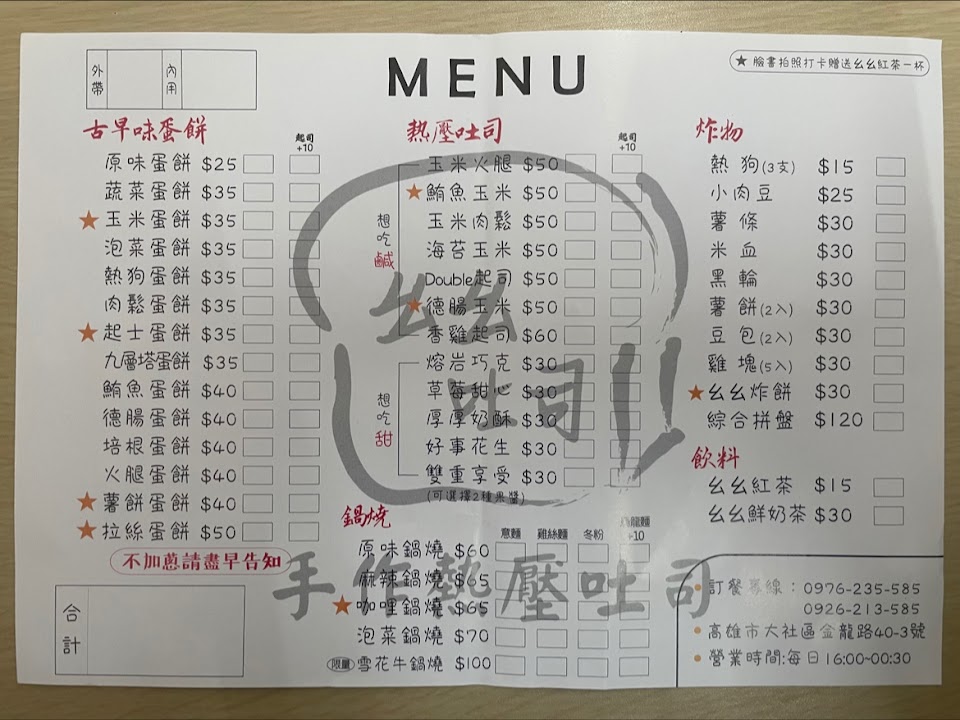 外帶
內用
MENU
★ 臉書拍照打卡贈送幺幺紅茶一杯
古早味蛋餅
起司+10
原味蛋餅 $25
蔬菜蛋餅 $35
★ 玉米蛋餅 $35
泡菜蛋餅 $35
熱狗蛋餅 $35
肉鬆蛋餅 $35
★ 起士蛋餅 $35
九層塔蛋餅 $35
鮪魚蛋餅 $40
德腸蛋餅 $40
培根蛋餅 $40
火腿蛋餅 $40
★ 薯餅蛋餅 $40
★ 拉絲蛋餅 $50
不加蔥請盡早告知
合計
熱壓吐司
起司+10
想吃鹹
玉米火腿 $50
★ 鮪魚玉米 $50
玉米肉鬆 $50
海苔玉米 $50
Double起司 $50
★ 德腸玉米 $50
香雞起司 $60
想吃甜
熔岩巧克 $30
草莓甜心 $30
厚厚奶酥 $30
好事花生 $30
雙重享受 $30
(可選擇2種果醬)
鍋燒
意麵 雞絲麵 冬粉 烏龍麵+10
原味鍋燒 $60
麻辣鍋燒 $65
★ 咖哩鍋燒 $65
泡菜鍋燒 $70
限量 雪花牛鍋燒 $100
幺幺
吐司
手作熱壓吐司
炸物
熱狗(3支) $15
小肉豆 $25
薯條 $30
米血 $30
黑輪 $30
薯餅(2入) $30
豆包(2入) $30
雞塊(5入) $30
★ 幺幺炸餅 $30
綜合拼盤 $120
飲料
幺幺紅茶 $15
幺幺鮮奶茶 $30
訂餐專線：0976-235-585
0926-213-585
高雄市大社區金龍路40-3號
營業時間:每日16:00~00:30